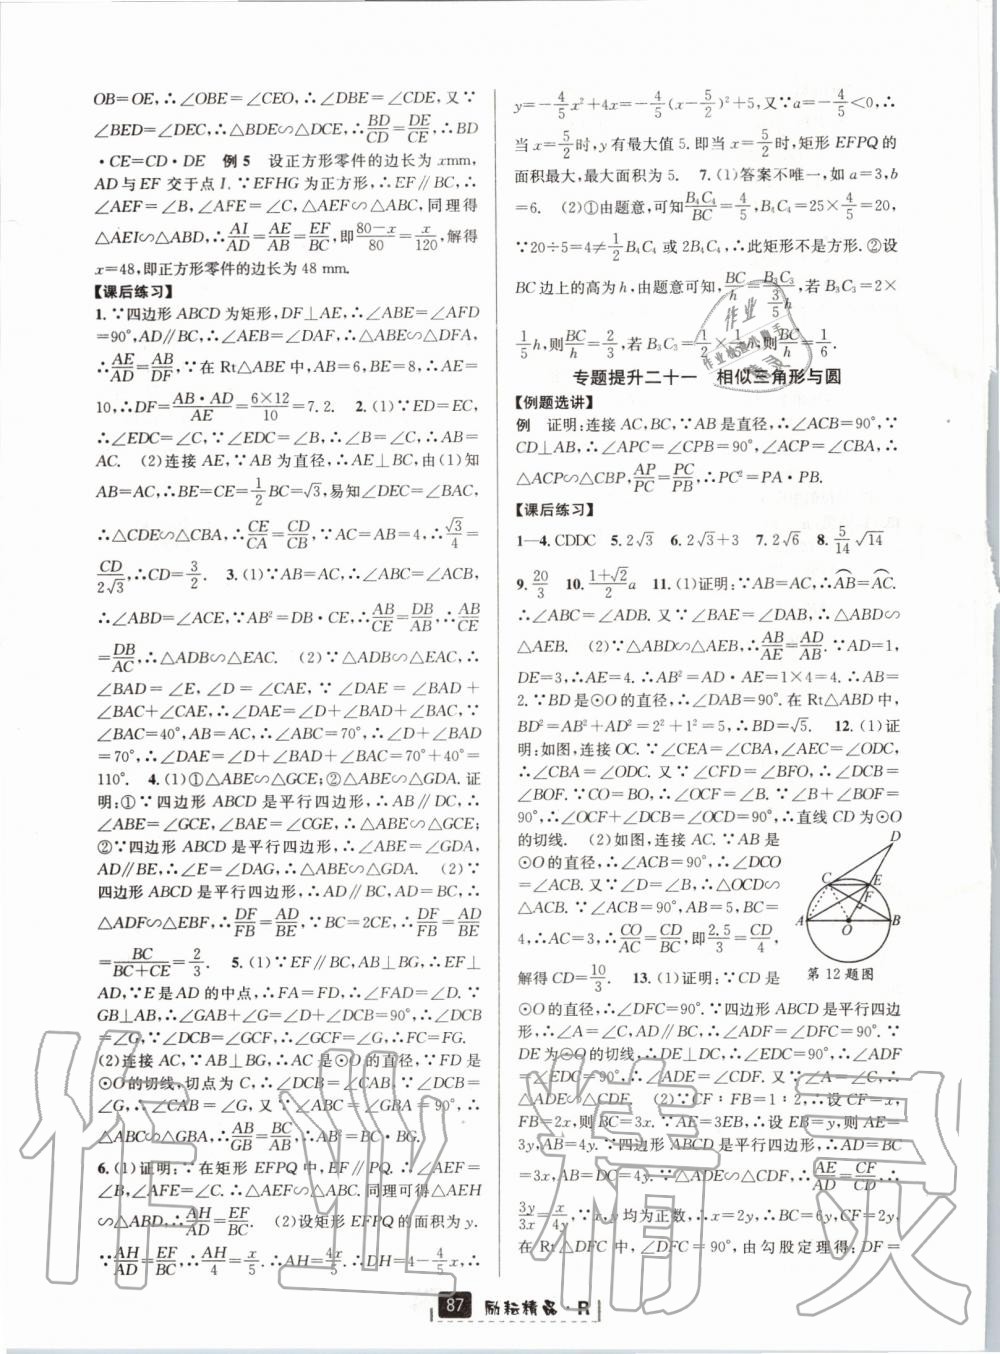 OB=OE,∴∠OBE=∠CEO,∴∠DBE=∠CDE,又∵
∠BED=∠DEC,∴△BDE∽△DCE,∴BD/CE=DE/CE,∴BD
·CE=CD·DE 例5 设正方形零件的边长为xmm,
AD与EF交于点I.∵EFHG为正方形,∴EF∥BC,∴
∠AEF=∠B,∠AFE=∠C,△AEF∽△ABC,同理得
△AEI∽△ABD,∴AI/AD=AE/AB=EF/BC,即80-x/80=x/120,解得
x=48,即正方形零件的边长为48 mm.
【课后练习】
1.∵四边形ABCD为矩形,DF⊥AE,∴∠ABE=∠AFD
=90°,AD∥BC,∴∠AEB=∠DAF,∴△ABE∽△DFA,
∴AE/AD=AB/DF,∵在Rt△ABE中,AB=6,BE=8,∴AE=
10,∴DF=AB·AD/AE=6×12/10=7.2. 2.(1)∵ED=EC,
∴∠EDC=∠C,∵∠EDC=∠B,∴∠B=∠C,∴AB=
AC. (2)连接AE,∵AB为直径,∴AE⊥BC,由(1)知
AB=AC,∴BE=CE=1/2BC=√3,易知∠DEC=∠BAC,
∴△CDE∽△CBA,∴CE/CA=CD/CB,∵AC=AB=4,∴√3/4=
CD/2√3,∴CD=3/2. 3.(1)∵AB=AC,∴∠ABC=∠ACB,
∴∠ABD=∠ACE,∵AB²=DB·CE,∴AB/CE=DB/AB,∴AB/CE
=DB/AC,∴△ADB∽△EAC. (2)∵△ADB∽△EAC,∴
∠BAD=∠E,∠D=∠CAE,∵∠DAE=∠BAD+
∠BAC+∠CAE,∴∠DAE=∠D+∠BAD+∠BAC,∵
∠BAC=40°,AB=AC,∴∠ABC=70°,∴∠D+∠BAD
=70°,∴∠DAE=∠D+∠BAD+∠BAC=70°+40°=
110°. 4.(1)①△ABE∽△GCE;②△ABE∽△GDA.证
明:①∵四边形ABCD是平行四边形,∴AB∥DC,∴
∠ABE=∠GCE,∠BAE=∠CGE,∴△ABE∽△GCE;
②∵四边形ABCD是平行四边形,∴∠ABE=∠GDA,
AD∥BE,∴∠E=∠DAG,∴△ABE∽△GDA. (2)∵
四边形ABCD是平行四边形,∴AD=BC,AD∥BE,∴
△ADF∽△EBF,∴DF/FB=AD/BE,∵BC=2CE,∴DF/FB=AD/BE
=BC/BC+CE=2/3. 5.(1)∵EF∥BC,AB⊥BG,∴EF⊥
AD,∵E是AD的中点,∴FA=FD,∴∠FAD=∠D.∵
GB⊥AB,∴∠GAB+∠G=∠D+∠DCB=90°,∴∠DCB
=∠G,∵∠DCB=∠GCF,∴∠GCF=∠G,∴FC=FG.
(2)连接AC,∵AB⊥BG,∴AC是⊙O的直径,∵FD是
⊙O的切线,切点为C,∴∠DCB=∠CAB,∵∠DCB=
∠G,∴∠CAB=∠G,又∵∠ABC=∠GBA=90°,∴
△ABC∽△GBA,∴AB/GB=BC/AB,∴AB²=BC·BG.
6.(1)证明:∵在矩形EFPQ中,EF∥PQ,∴∠AEF=
∠B,∠AFE=∠C.∴△AEF∽△ABC.同理可得△AEH
∽△ABD,∴AH/AD=EF/BC. (2)设矩形EFPQ的面积为y.
∵AH/AD=EF/BC,∴AH/4=x/5,∴AH=4x/5.∴DH=4-4/5x,∴
y=-4/5x²+4x=-4/5(x-5/2)²+5,又∵a=-4/5<0,∴
当x=5/2时,y有最大值5.即当x=5/2时,矩形EFPQ的
面积最大,最大面积为5. 7.(1)答案不唯一,如a=3,b
=6. (2)①由题意,可知B₄C₄/BC=4/5,B₄C₄=25×4/5=20,
∵20÷5=4≠1/2B₄C₄或2B₄C₄,∴此矩形不是方形.②设
BC边上的高为h,由题意可知,BC/h=B₃C₃/(3/5h),若B₃C₃=2×
1/5h,则BC/h=2/3,若B₃C₃=1/2×1/5h,则BC/h=1/6.
专题提升二十一 相似三角形与圆
【例题选讲】
例 证明:连接AC,BC,∵AB是直径,∴∠ACB=90°,∵
CD⊥AB,∴∠APC=∠CPB=90°,∠ACP=∠CBA,∴
△ACP∽△CBP,AP/PC=PC/PB,∴PC²=PA·PB.
【课后练习】
1—4.CDDC 5.2√3 6.2√3+3 7.2√6 8.5/14√14
9.20/3 10.1+√2/2a 11.(1)证明:∵AB=AC,∴AB=AC.
∴∠ABC=∠ADB.又∵∠BAE=∠DAB,∴△ABD∽
△AEB. (2)∵△ABD∽△AEB,∴AB/AE=AD/AB.∵AD=1,
DE=3,∴AE=4.∴AB²=AD·AE=1×4=4.∴AB=
2.∵BD是⊙O的直径,∴∠DAB=90°.在Rt△ABD中,
BD²=AB²+AD²=2²+1²=5,∴BD=√5. 12.(1)证
明:如图,连接OC.∵∠CEA=∠CBA,∠AEC=∠ODC,
∴∠CBA=∠ODC.又∵∠CFD=∠BFO,∴∠DCB=
∠BOF.∵CO=BO,∴∠OCF=∠B.∵∠B+∠BOF=
90°,∴∠OCF+∠DCB=∠OCD=90°,∴直线CD为⊙O
的切线. (2)如图,连接AC.∵AB是
⊙O的直径,∴∠ACB=90°,∴∠DCO
=∠ACB.又∵∠D=∠B,∴△OCD∽
△ACB.∵∠ACB=90°,AB=5,BC=
4,∴AC=3,∴CO/AC=CD/BC,即2.5/3=CD/4,
解得CD=10/3. 13.(1)证明:∵CD是
D
C
E
F
A
O
B
第12题图
⊙O的直径,∴∠DFC=90°.∵四边形ABCD是平行四边
形,∴∠A=∠C,AD∥BC,∴∠ADF=∠DFC=90°.∵
DE为⊙O的切线,∴DE⊥DC,∴∠EDC=90°,∴∠ADF
=∠EDC=90°,∴∠ADE=∠CDF.又∵∠A=∠C,∴
△ADE∽△CDF. (2)∵CF∶FB=1∶2,∴设CF=x,
FB=2x,则BC=3x.∵AE=3EB,∴设EB=y,则AE=
3y,AB=4y.∵四边形ABCD是平行四边形,∴AD=BC
=3x,AB=DC=4y.∵△ADE∽△CDF,∴AE/AD=CF/CD,∴
3y/3x=x/4y,∵x,y均为正数,∴x=2y,∴BC=6y,CF=2y.
在Rt△DFC中,∠DFC=90°,由勾股定理得:DF=
87 励耘精品·R
作业精灵